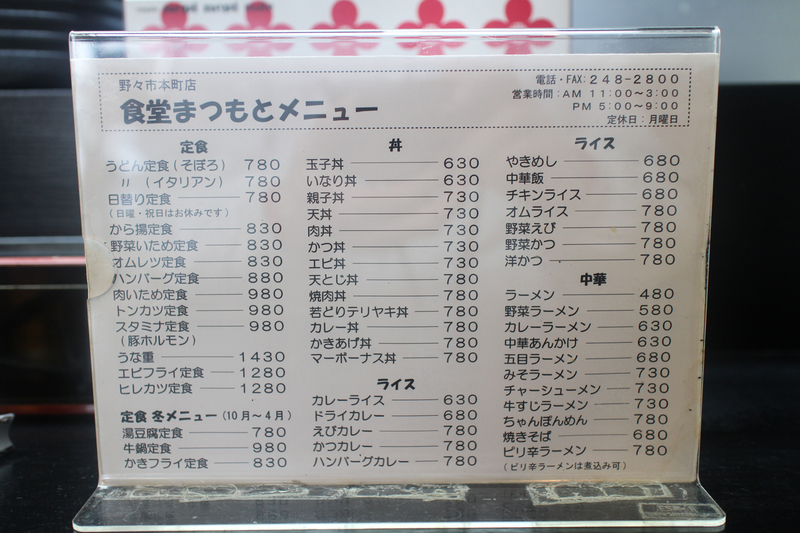 野々市本町店
食堂まつもとメニュー
電話・FAX:248-2800
営業時間:AM 11:00〜3:00
PM 5:00〜9:00
定休日:月曜日
定食
うどん定食(そぼろ) 780
〃 (イタリアン) 780
日替り定食 780
(日曜・祝日はお休みです)
から揚定食 830
野菜いため定食 830
オムレツ定食 830
ハンバーグ定食 880
肉いため定食 980
トンカツ定食 980
スタミナ定食 980
(豚ホルモン)
うな重 1430
エビフライ定食 1280
ヒレカツ定食 1280
定食 冬メニュー(10月〜4月)
湯豆腐定食 780
牛鍋定食 980
かきフライ定食 830
丼
玉子丼 630
いなり丼 630
親子丼 730
天丼 730
肉丼 730
かつ丼 730
エビ丼 730
天とじ丼 780
焼肉丼 780
若どりテリヤキ丼 780
カレー丼 780
かきあげ丼 780
マーボーナス丼 780
ライス
カレーライス 630
ドライカレー 680
えびカレー 780
かつカレー 780
ハンバーグカレー 780
ライス
やきめし 680
中華飯 680
チキンライス 680
オムライス 780
野菜えび 780
野菜かつ 780
洋かつ 780
中華
ラーメン 480
野菜ラーメン 580
カレーラーメン 630
中華あんかけ 630
五目ラーメン 680
みそラーメン 730
チャーシューメン 730
牛すじラーメン 730
ちゃんぽんめん 780
焼きそば 680
ピリ辛ラーメン 780
(ピリ辛ラーメンは煮込み可)